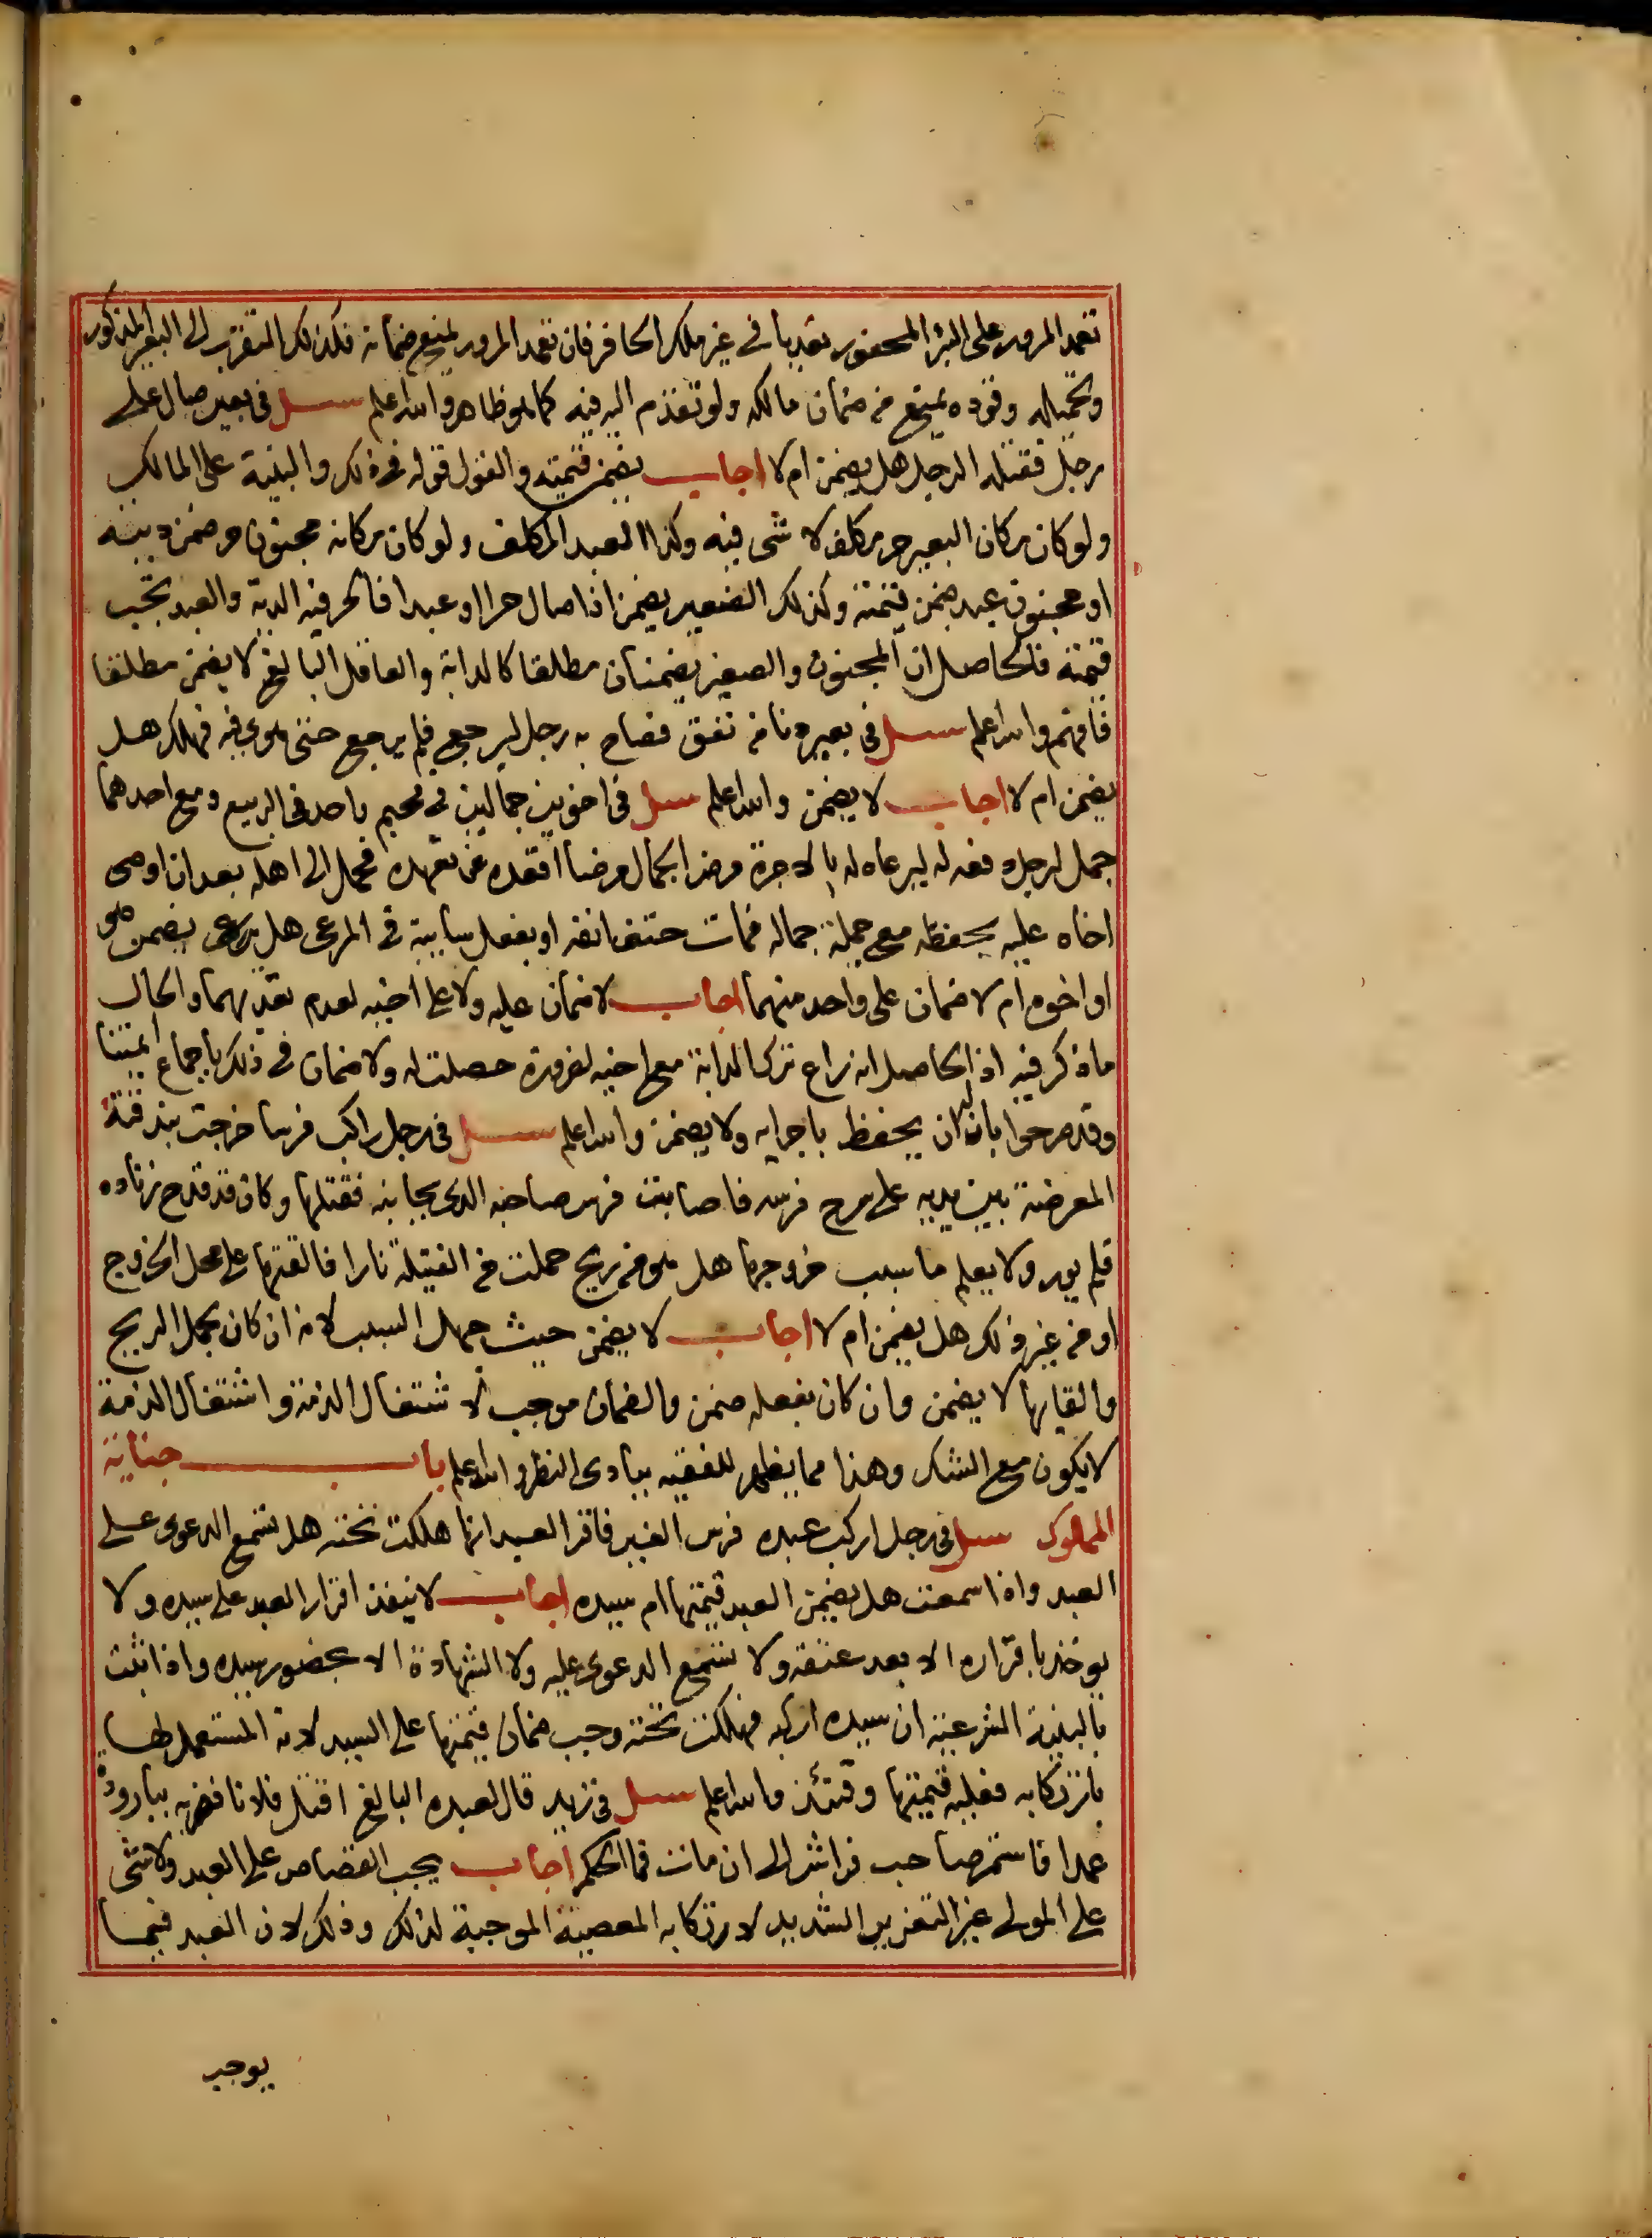 تعمد المرور على البئر المحفور تعديا في غير ملك الحافر فان تعمد المرور يمنع ضمانه فكذلك التقرب الى البعير المذكور
وتحميله وقوده يمنع من ضمان مالكه ولو تقدم اليه فيه كما هو ظاهر والله اعلم سئل في بعير صال على
رجل فقتله الرجل هل يضمن ام لا اجاب يضمن قيمته والقول قوله في ذلك والبينة على المالك
ولو كان مكان البعير حر مكلف لا شي فيه وكذا العبد المكلف ولو كان مكانه مجنون حر ضمن ديته
او مجنون عبد ضمن قيمته وكذلك الصغير يضمن اذا صال حرا او عبدا فالحر فيه الدية والعبد تجب
قيمته فالحاصل ان المجنون والصغير يضمنان مطلقا كالدابة والعاقل البالغ لا يضمن مطلقا
فافهم والله اعلم سئل في بعير دنا من نفق فصاح به رجل ليرجع فلم يرجع حتى هوى فيه فهلك هل
يضمن ام لا اجاب لا يضمن والله اعلم سئل في اخوين جمالين في مخيم واحد في الربيع ومع احدهما
جمل لرجل دفعه له ليرعاه له بالاجرة مرض الجمال مرضا اقعده عن تعهده فحمل الى اهله بعد ان اوصى
اخاه عليه بحفظه مع جملة جماله فمات حتف انفه او بفعل سايبة في المرعى هل يضمن هو
او اخوه ام لا ضمان على واحد منهما اجاب لا ضمان عليه ولا على اخيه لعدم تعديهما والحال
ما ذكر فيه اذ الحاصل انه راع ترك الدابة مع اخيه لضرورة حصلت له ولا ضمان في ذلك باجماع ايمتنا
وقد صرحوا بان له ان يحفظ باجرايه ولا يضمن والله اعلم سئل في رجل راكب فرسا خرجت بندقته
المعرضة بين يديه على سرج فرسه فاصابت فرس صاحبه الذي بجانبه فقتلها وكان قد قدح زناده
فلم يور ولا يعلم ما سبب خروجها هل هو من ريح حملت من الفتيلة نارا فالقتها على محل الخروج
او من غير ذلك هل يضمن ام لا اجاب لا يضمن حيث جهل السبب لانه ان كان بحمل الريح
والقايها لا يضمن وان كان بفعله ضمن والضمان موجب لاشتغال الذمة واشتغال الذمة
لا يكون مع الشك وهذا مما يظهر للفقيه ببادى النظر والله اعلم باب جناية
المملوك سئل في رجل اركب عبده فرس الغير فاقر العبد انها هلكت تحته هل تسمع الدعوى على
العبد واذا سمعت هل يضمن العبد قيمتها ام سيده اجاب لا ينفذ اقرار العبد على سيده ولا
يوخذ باقراره الا بعد عتقه ولا تسمع الدعوى عليه ولا الشهادة الا بحضور سيده واذا ثبت
بالبينة الشرعية ان سيده اركبه فهلكت تحته وجب ضمان قيمتها على السيد لانه المستعمل لها
بارتكابه فعليه قيمتها وقتئذ والله اعلم سئل في زيد قال لعبده البالغ اقتل فلانا فضربه ببارودة
عمدا فاستمر صاحب فراش الى ان مات فما الحكم اجاب يجب القصاص على العبد ولا شي
على المولى غير التعزير الشديد لارتكابه المعصية الموجبة لذلك وذلك لان العبد فيما
يوجب